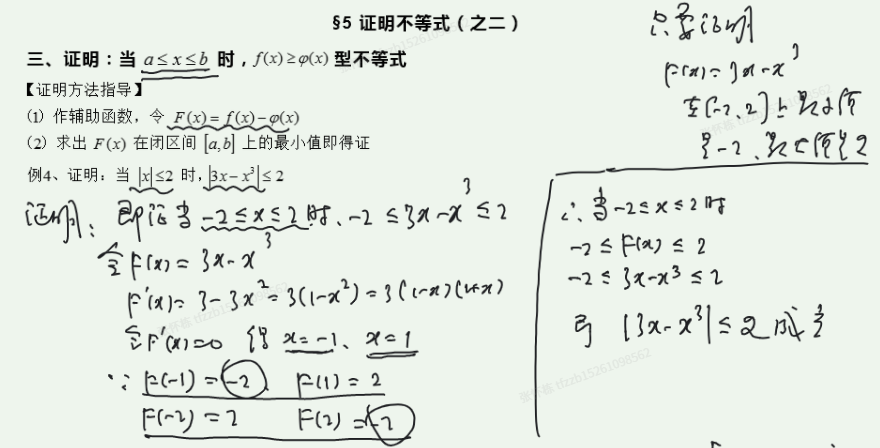 §5 证明不等式（之二）
三、证明：当 a≤x≤b 时，f(x)≥φ(x) 型不等式
【证明方法指导】
(1) 作辅助函数，令 F(x)=f(x)−φ(x)
(2) 求出 F(x) 在闭区间 [a,b] 上的最小值即得证
例4、证明：当 |x|≤2 时，|3x−x³|≤2
证明：即证当 -2≤x≤2时、-2≤3x-x³≤2
令F(x)=3x-x³
F'(x)=3-3x²=3(1-x²)=3(1-x)(1+x)
令F'(x)=0 得 x=-1、x=1
∵ F(-1)=-2 F(1)=2
F(-2)=2 F(2)=-2
只要证明
F(x)=3x-x³
在[-2、2]上最小值
是-2、最大值是2
∴ 当-2≤x≤2时
-2≤F(x)≤2
-2≤3x-x³≤2
即 |3x-x³|≤2 成立